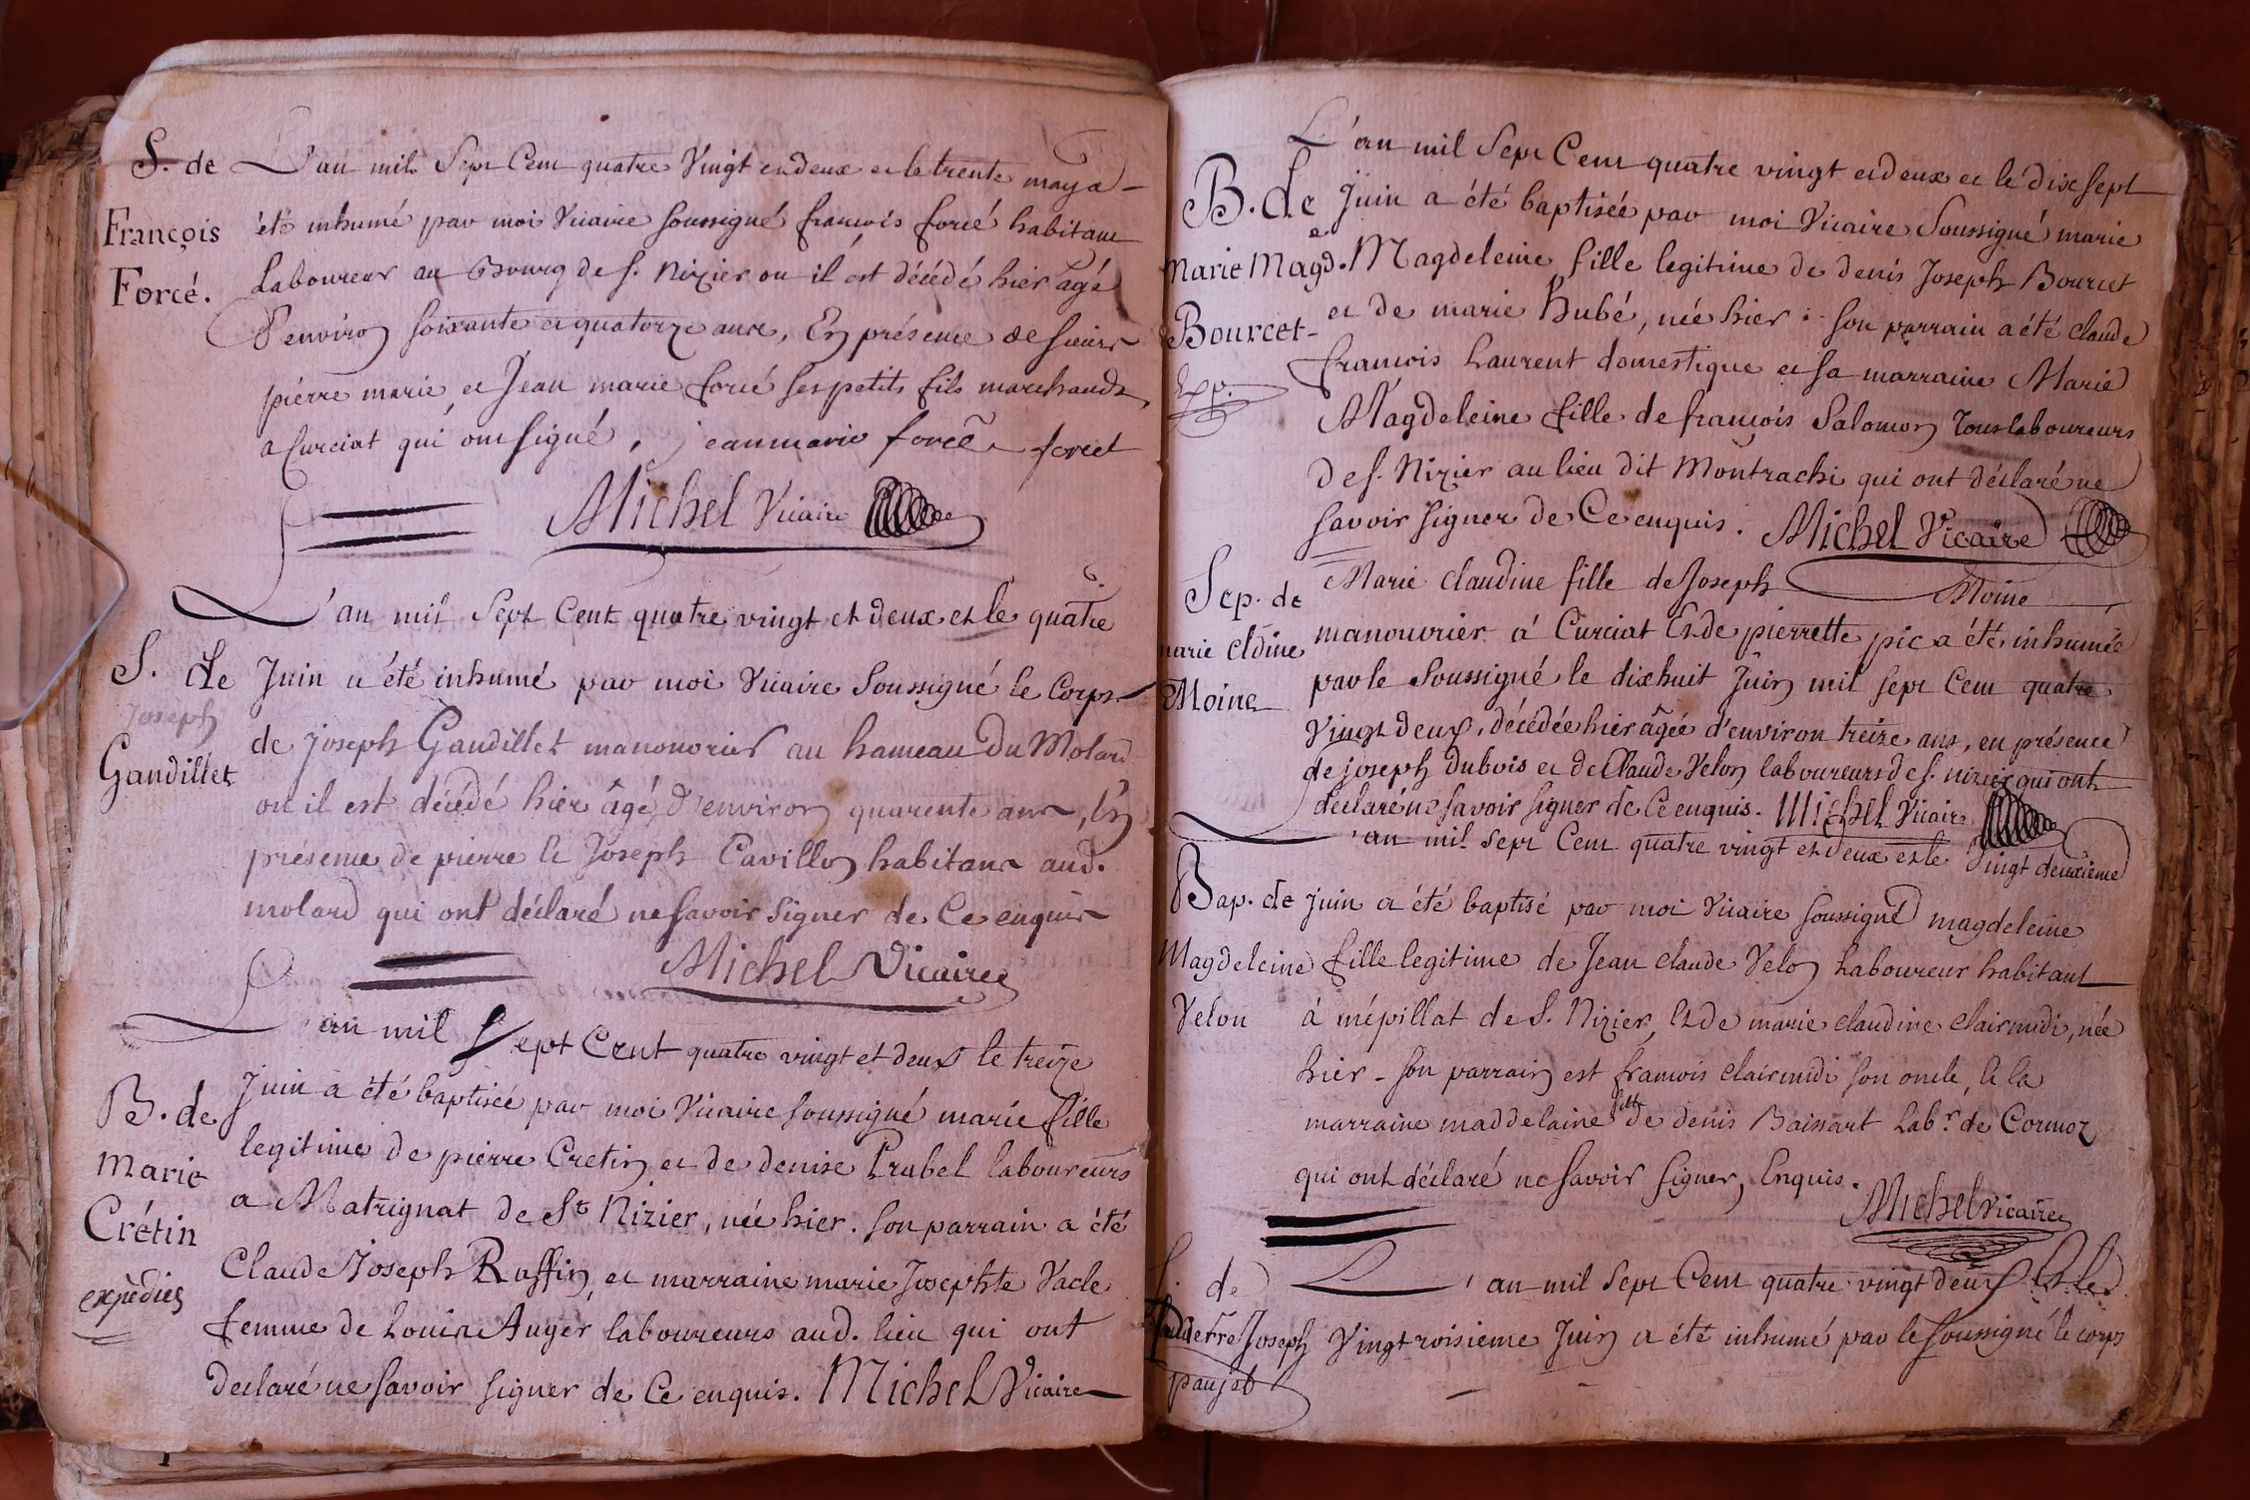 S. de
François
Forcé.
L'an mil Sept Cent quatre Vingt et deux et le trente may a
été inhumé par moi Vicaire soussigné françois forcé habitant
Laboureur au Bourg de s. Nizier ou il est décédé hier âgé
D'environ soixante et quatorze ans, En présence de sieurs
pierre marie, et Jean marie forcé ses petits fils marchands
a Curciat qui ont signé, jean marie forcé forcet
Michel Vicaire
S. de
Joseph
Gandillet
L'an mil Sept Cent quatre vingt et deux et le quatre
Juin a été inhumé par moi Vicaire soussigné le Corps
de joseph Gandillet manouvrier au hameau Du Molard
ou il est décédé hier âgé D'environ quarente ans, En
présence de pierre et Joseph Cavillon habitans aud.
molard qui ont déclaré ne savoir signer de Ce enquis
Michel Vicaire
B. de
Marie
Crétin
expédiés
L'an mil Sept Cent quatre vingt et deux le treize
Juin a été baptisée par moi Vicaire soussigné marie fille
legitime de pierre Cretin et de denise Prabel laboureurs
a Matrignat de St Nizier, née hier. son parrain a été
Claude Joseph Ruffin, et marraine marie Josephte Vacle
femme de Louis Auger laboureurs aud. lieu qui ont
Declaré ne savoir signer de Ce enquis. Michel Vicaire
B. de
Marie Magde.
Bourcet
Exp.
L'an mil Sept Cent quatre vingt et deux et le dix sept
Juin a été baptisée par moi Vicaire Soussigné marie
Magdeleine fille legitime de denis Joseph Bourcet
et de marie hubé, née hier : son parrain a été claude
françois Laurent domestique et sa marraine Marie
Magdeleine fille de françois Salomon Tous laboureurs
De s. Nizier au lieu dit Montrachi qui ont déclaré ne
savoir signer de Ce enquis. Michel Vicaire
Sep. de
marie Cldine
Moine
Marie claudine fille de Joseph Moine
manouvrier à Curciat Et de pierrette pic a été inhumée
par le Soussigné le dixhuit Juin mil sept Cent quatre
Vingt Deux, décédée hier âgée d'environ treize ans, en présence
de joseph dubois et de Claude Velon laboureurs de s. nizier qui ont
déclaré ne savoir signer de Ce enquis. Michel Vicaire
Bap. de
Magdeleine
Velon
L'an mil sept Cent quatre vingt et Deux et le Vingt deuxieme
juin a été baptisé par moi Vicaire soussigné magdeleine
fille legitime de Jean claude Velon Laboureur habitant
à mépillat de S. Nizier, Et de marie claudine clairmidi, née
hier - son parrain est françois clairmidi son oncle, et la
marraine maddelaine fille de denis Baissart Labr. de Cormoz
qui ont déclaré ne savoir signer, Enquis.
Michel Vicaire
S. de
Joseph
paujet
L'an mil Sept Cent quatre vingt deux Et le
Vingtroisieme Juin a été inhumé par le soussigné le corps